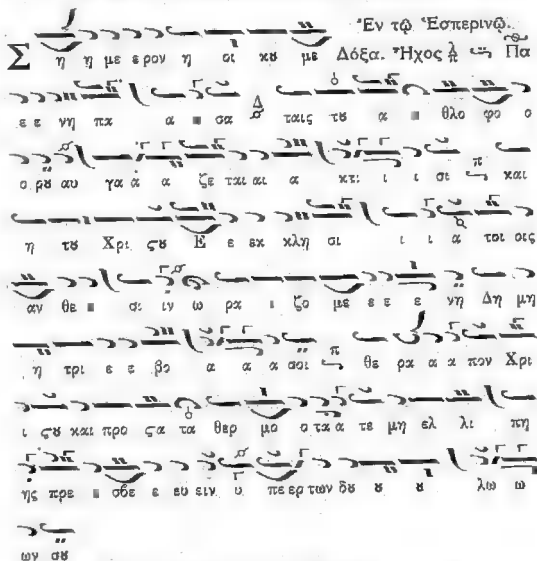 Ἐν τῷ Ἑσπερινῷ.
Σ η η με ερον η οι κȣ με Δόξα. Ἦχος λ π Πα
ε ε νη πα α σα Δ ταις τȣ α θλο φο ο
ο ρȣ αυ γα α α ζε ται αι α κτι ι ι σι π και
η τȣ Χρι ϛȣ Ε ε εκ κλη σι ι ι α τοι οις
αν θε σι ιν ω ρα ι ζο με ε ε ε νη Δη μη
η τρι ε ε βο α α α σοι π θε ρα α α πον Χρι
ι ϛȣ και προ ϛα τα θερ μο ο τα α τε μη ελ λι πη
ης πρε σβε ε ευ ειν υ πε ερ των δȣ ȣ ȣ λω ω
ων σȣ